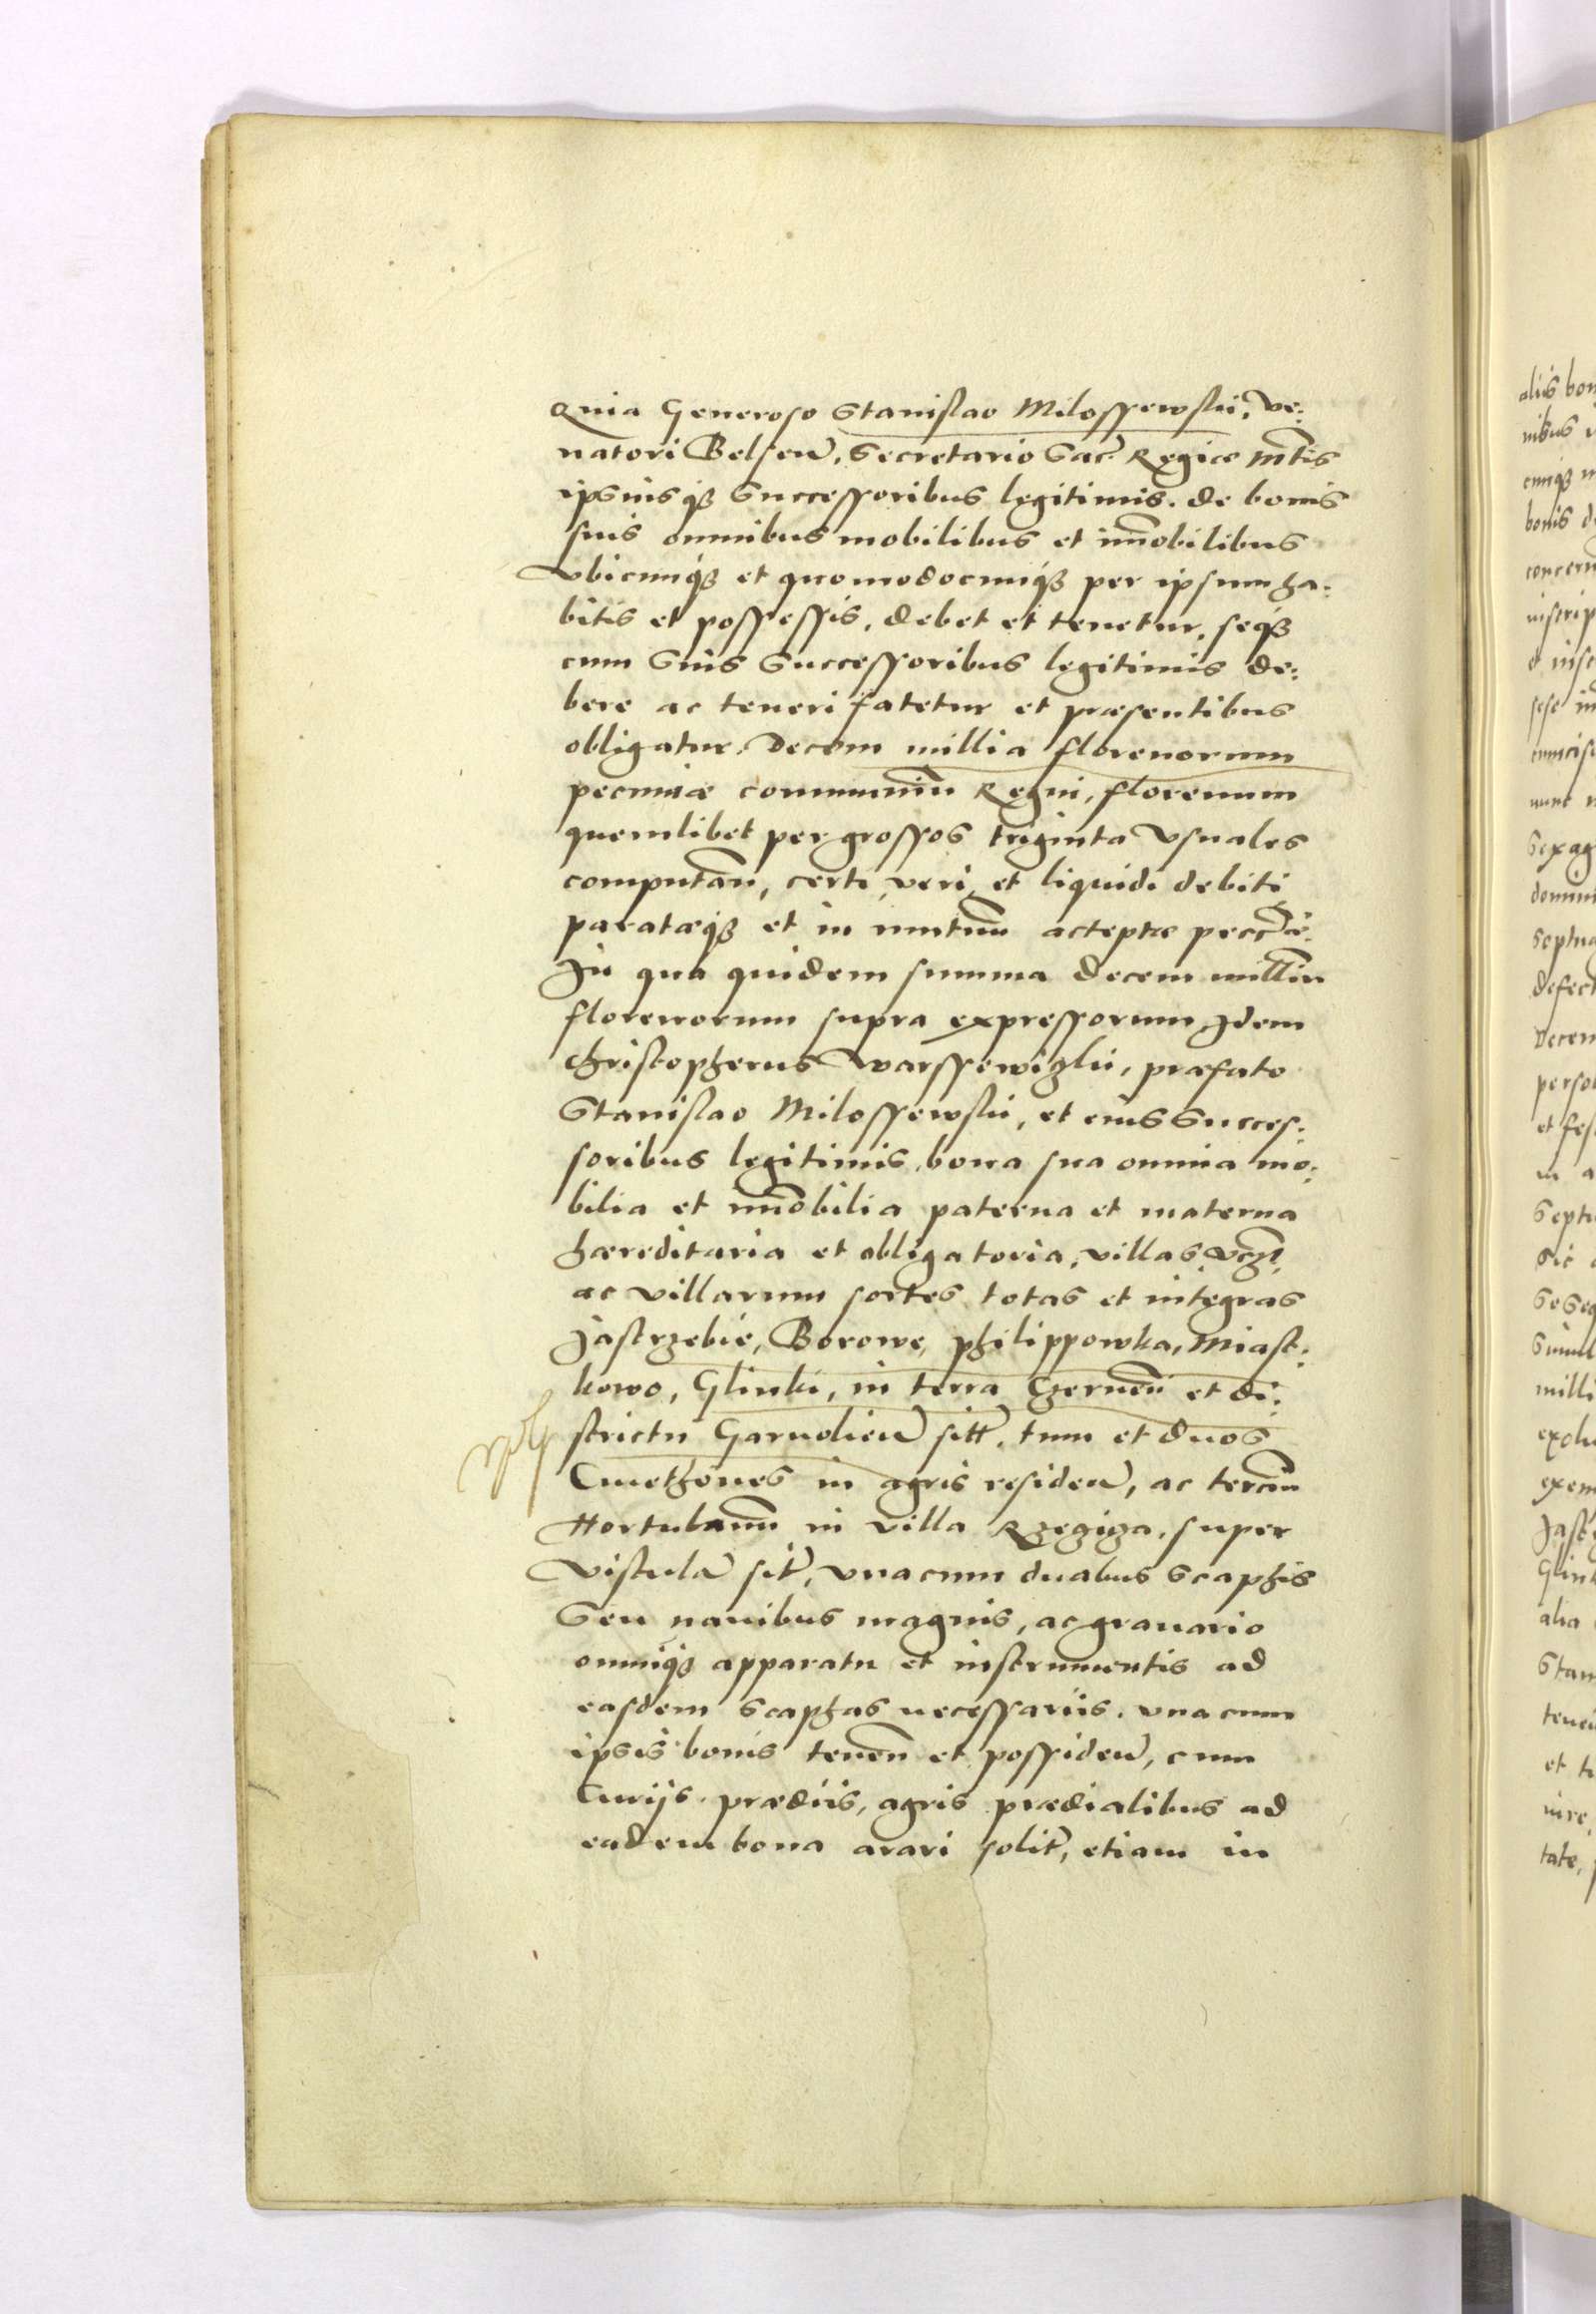 Quia Generoso Stanislao Milossewski, ve:
natori Belsen̄, Secretario Sac̄ Regiæ Mtis
ipsiusqȝ Successoribus legitimis. de bonis
suis omnibus mobilibus et im̄obilibus
vbicunqȝ et quomodocunqȝ per ipsum ha:
bitis et possessis, debet et tenetur, seqȝ
cum Suis Successoribus legitimis de:
bere ac teneri fatetur et præsentibus
obligatur. Decem millia florenorum
pecuniæ communiu̅ Regni, florenum
quemlibet per grossos triginta vsuales
computan̄, certi veri, et liquidi debiti
parataeqȝ et in mutuu̅ acceptæ pecu̅æ.
In qua quidem summa decem milliu̅
florenorum supra expressorum Idem
Christopherus Warssewizki, præfato
Stanislao Milossewski, et eius Succes:
soribus legitimis, bona sua omnia mo:
bilia et im̄obilia paterna et materna
hæreditaria et obligatoria, villas, vcꝫ,
ac villarum sortes totas et integras
Jastrzebie, Borowe, Philippowka, Miast:
kowo, Glinki, in terra Czernen̄ et di:
strictu Garuolien̄ sitt̄. tum et duos
Cmethones in agris residen̄, ac terciu̅
Hortulanu̅ in villa Rzegiza, super
Vistula̅ sit̄, vnacum duabus Scaphis
Seu nauibus magnis, ac granario
omniqȝ apparatu et instrumentis ad
easdem Scaphas necessariis. vnacum
ipsis bonis tenen̄ et possiden̄, cum
Curijs prædiis, agris prædialibus ad
eadem bona arari solit̄, etiam in